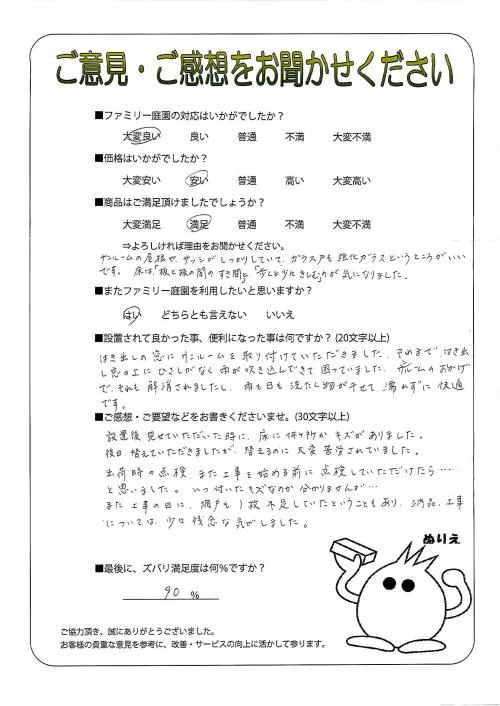 ご意見・ご感想をお聞かせください
■ファミリー庭園の対応はいかがでしたか？
大変良い 良い 普通 不満 大変不満
■価格はいかがでしたか？
大変安い 安い 普通 高い 大変高い
■商品はご満足頂けましたでしょうか？
大変満足 満足 普通 不満 大変不満
⇒よろしければ理由をお聞かせください。
サンルームの屋根や、サッシがしっかりしていて、ガラス戸も強化ガラスというところがいい
です。 床は、「板と板の間のすき間」と「歩くと少々きしむ」のが気になりました。
■またファミリー庭園を利用したいと思いますか？
はい どちらとも言えない いいえ
■設置されて良かった事、便利になった事は何ですか？(20文字以上)
はき出しの窓にサンルームを取り付けていただきました。それまで、はき出
し窓の上にひさしがなく雨が吹き込んできて困っていました。サンルームのおかげ
で、それも解消されましたし、雨も日も洗たく物が干せて、濡れずに快適
です。
■ご感想・ご要望などをお書きくださいませ。(30文字以上)
設置後見せていただいた時に、床に何ヶ所かキズがありました。
後日替えていただきましたが、替えるのに大変苦労されていました。
出荷時の点検、また工事を始める前に点検していただけたら…
と思いました。いつ付いたキズなのか分かりませんが…
また工事の日に、網戸も1枚不足していたということもあり、納品、工事
については、少々残念な気がしました。
ぬりえ
■最後に、ズバリ満足度は何％ですか？
90 %
ご協力頂き、誠にありがとうございました。
お客様の貴重な意見を参考に、改善・サービスの向上に活かして参ります。